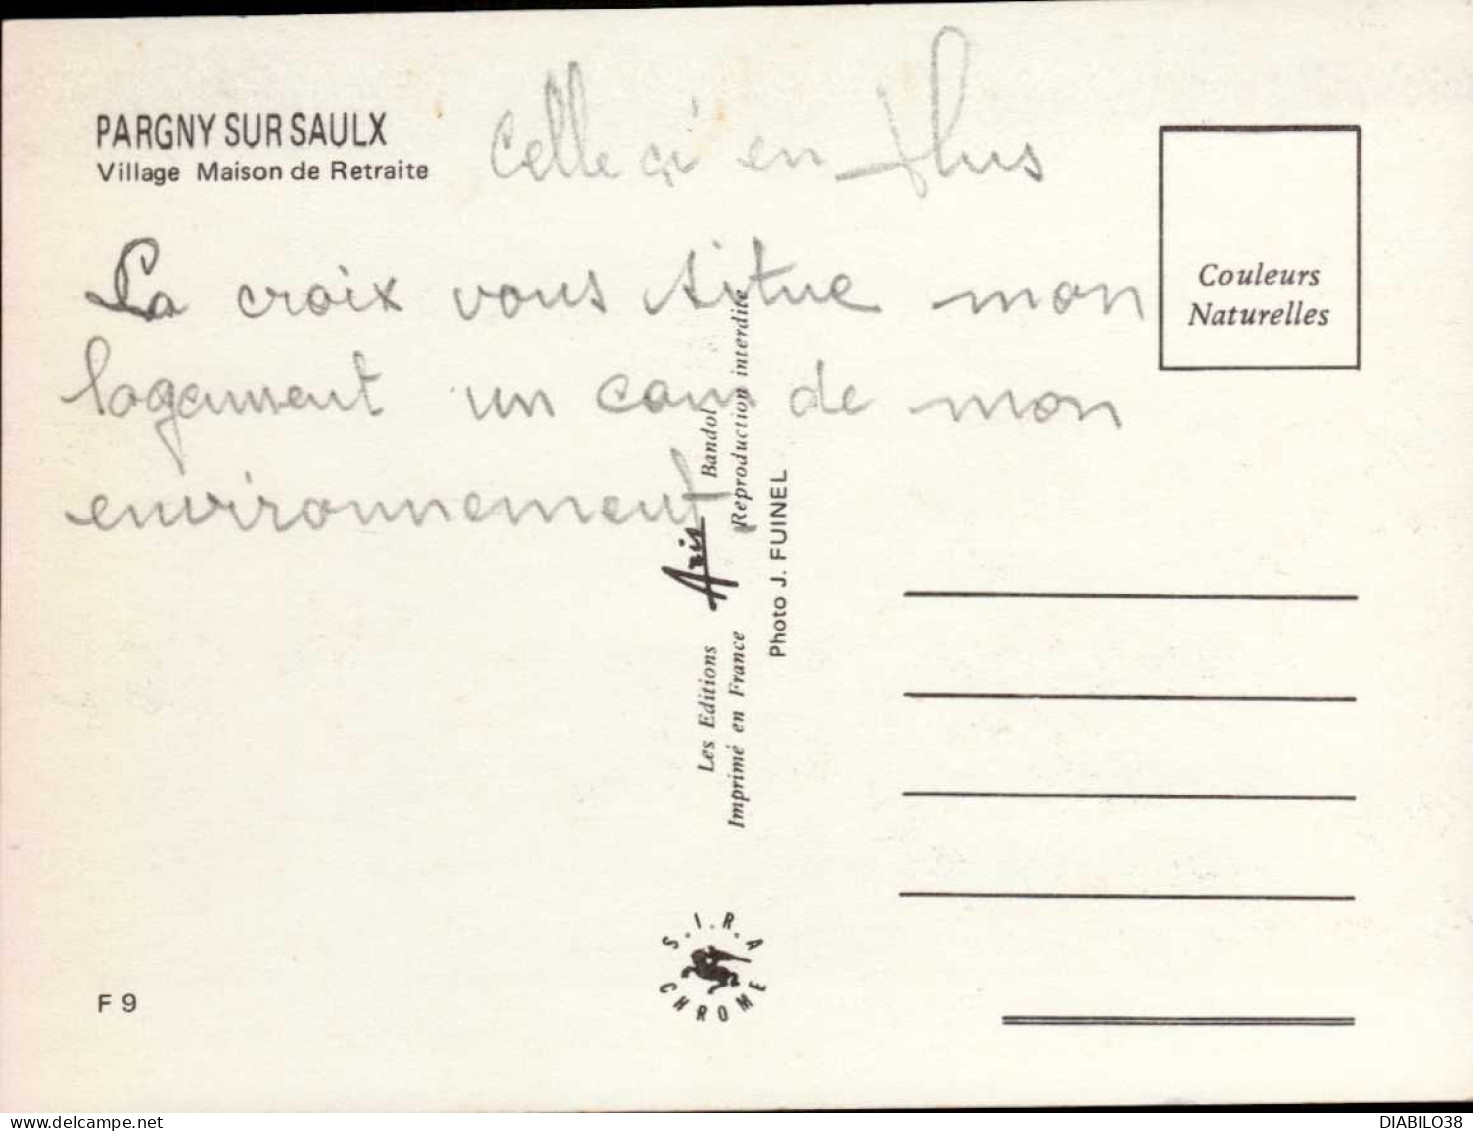 PARGNY SUR SAULX
Village Maison de Retraite
Celle ci en plus
La croix vous situe mon
logement un coin de mon
environnement.
Couleurs
Naturelles
Les Editions Aris Bandol
Imprimé en France Reproduction interdite
Photo J. FUINEL
S.I.R.A
CHROME
F 9
DIABILO38